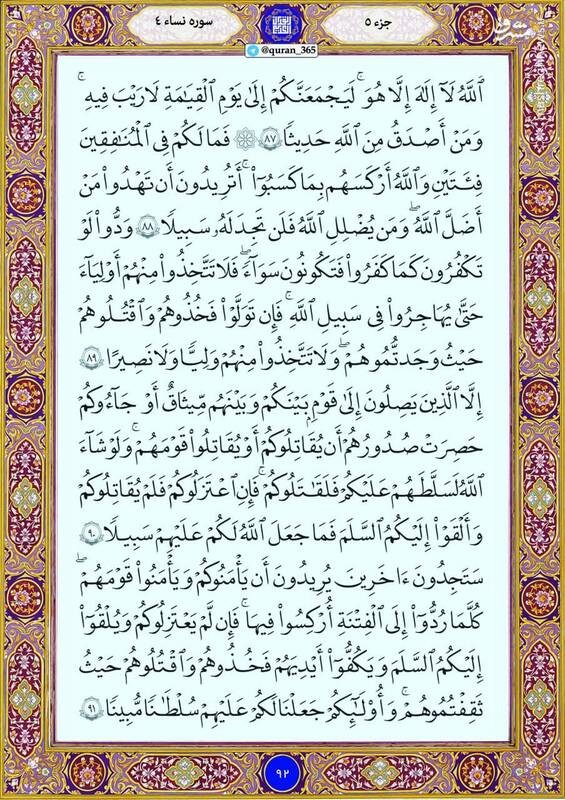 جزء ۵
سوره نساء ۴
@quran_365
ٱللَّهُ لَآ إِلَٰهَ إِلَّا هُوَۚ لَيَجۡمَعَنَّكُمۡ إِلَىٰ يَوۡمِ ٱلۡقِيَٰمَةِ لَا رَيۡبَ فِيهِۗ
وَمَنۡ أَصۡدَقُ مِنَ ٱللَّهِ حَدِيثٗا ٨٧ ۞ فَمَا لَكُمۡ فِي ٱلۡمُنَٰفِقِينَ
فِئَتَيۡنِ وَٱللَّهُ أَرۡكَسَهُم بِمَا كَسَبُوٓاْۚ أَتُرِيدُونَ أَن تَهۡدُواْ مَنۡ
أَضَلَّ ٱللَّهُۖ وَمَن يُضۡلِلِ ٱللَّهُ فَلَن تَجِدَ لَهُۥ سَبِيلٗا ٨٨ وَدُّواْ لَوۡ
تَكۡفُرُونَ كَمَا كَفَرُواْ فَتَكُونُونَ سَوَآءٗۖ فَلَا تَتَّخِذُواْ مِنۡهُمۡ أَوۡلِيَآءَ
حَتَّىٰ يُهَاجِرُواْ فِي سَبِيلِ ٱللَّهِۚ فَإِن تَوَلَّوۡاْ فَخُذُوهُمۡ وَٱقۡتُلُوهُمۡ
حَيۡثُ وَجَدتُّمُوهُمۡۖ وَلَا تَتَّخِذُواْ مِنۡهُمۡ وَلِيّٗا وَلَا نَصِيرًا ٨٩
إِلَّا ٱلَّذِينَ يَصِلُونَ إِلَىٰ قَوۡمِۭ بَيۡنَكُمۡ وَبَيۡنَهُم مِّيثَٰقٌ أَوۡ جَآءُوكُمۡ
حَصِرَتۡ صُدُورُهُمۡ أَن يُقَٰتِلُوكُمۡ أَوۡ يُقَٰتِلُواْ قَوۡمَهُمۡۚ وَلَوۡ شَآءَ
ٱللَّهُ لَسَلَّطَهُمۡ عَلَيۡكُمۡ فَلَقَٰتَلُوكُمۡۚ فَإِنِ ٱعۡتَزَلُوكُمۡ فَلَمۡ يُقَٰتِلُوكُمۡ
وَأَلۡقَوۡاْ إِلَيۡكُمُ ٱلسَّلَمَ فَمَا جَعَلَ ٱللَّهُ لَكُمۡ عَلَيۡهِمۡ سَبِيلٗا ٩٠
سَتَجِدُونَ ءَاخَرِينَ يُرِيدُونَ أَن يَأۡمَنُوكُمۡ وَيَأۡمَنُواْ قَوۡمَهُمۡۖ
كُلَّ مَا رُدُّوٓاْ إِلَى ٱلۡفِتۡنَةِ أُرۡكِسُواْ فِيهَاۚ فَإِن لَّمۡ يَعۡتَزِلُوكُمۡ وَيُلۡقُوٓاْ
إِلَيۡكُمُ ٱلسَّلَمَ وَيَكُفُّوٓاْ أَيۡدِيَهُمۡ فَخُذُوهُمۡ وَٱقۡتُلُوهُمۡ حَيۡثُ
ثَقِفۡتُمُوهُمۡۚ وَأُوْلَٰٓئِكُمۡ جَعَلۡنَا لَكُمۡ عَلَيۡهِمۡ سُلۡطَٰنٗا مُّبِينٗا ٩١
۹۲